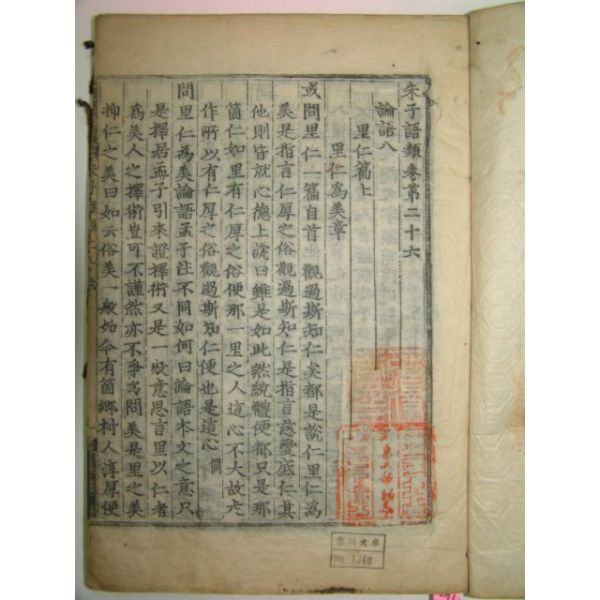 朱子語類卷第二十六
論語八
里仁篇上
里仁為美章
或問里仁一篇自首至觀過斯知仁矣都是說仁里仁為
美是指言仁厚之俗觀過斯知仁是指言慈愛底仁其
他則皆就心德上說曰雖是如此然統體便都只是那
箇仁如里有仁厚之俗便那一里之人這心不大故走
作所以有仁厚之俗觀過斯知仁便也是這心 僩
問里仁為美論語孟子注不同如何曰論語本文之意只
是擇居孟子引來證擇術又是一般意思言里以仁者
為美人之擇術豈可不謹然亦不爭多問美是里之美
抑仁之美曰如云俗美一般如今有箇鄉村人淳厚便
文庫
No. 1340